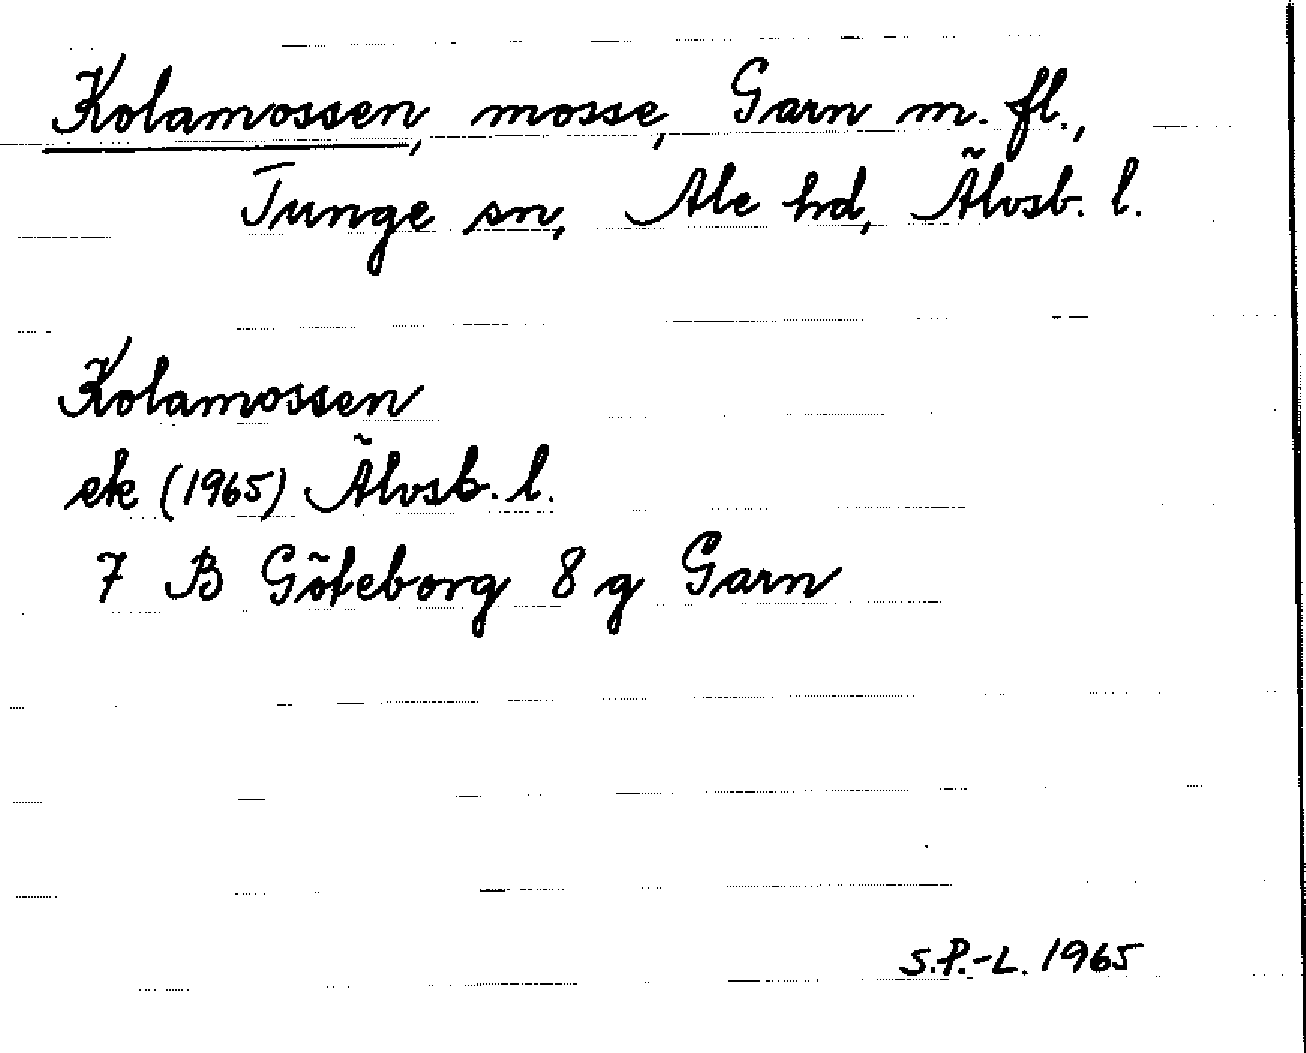 Kolamossen, mosse, Garn m. fl.,
Tunge sn, Ale hd, Älvsb. l.
Kolamossen
ek (1965) Älvsb. l.
7 B Göteborg 8 g Garn
S.P.-L. 1965